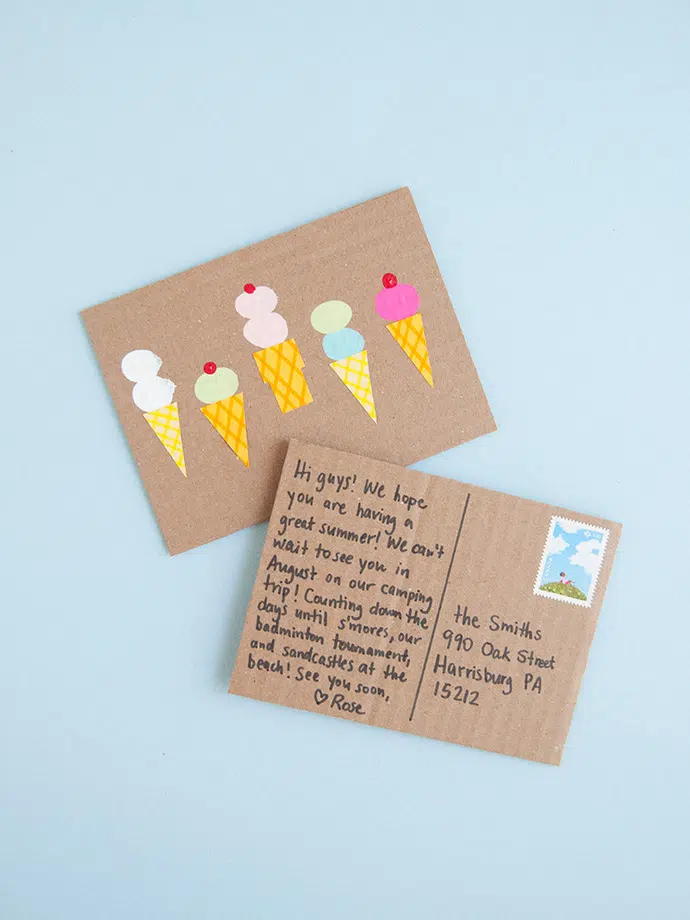 Hi guys! We hope
you are having a
great summer! We can't
wait to see you in
August on our camping
trip! Counting down the
days until s'mores, our
badminton tournament,
and sandcastles at the
beach! See you soon,
♡ Rose
the Smiths
990 Oak Street
Harrisburg PA
15212